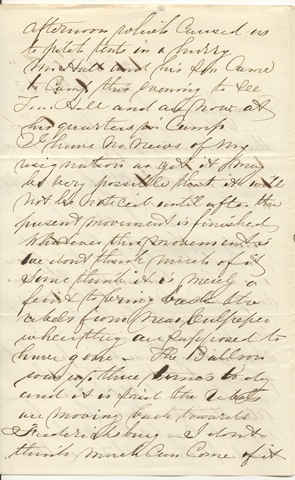 afternoon which caused us
to pitch tents in a hurry
Mr Hall and his son came
to camp this evening to see
Tom Hall and are now at
his quarters in camp
I have no news of my
resignation as yet it may
be very possible that it will
not be noticed until after the
present movement is finished
Whatever this movement is
we dont think much of it
Some think it is merely a
feint to bring back the
rebels from near Culpeper
where they are supposed to
have gone - The Balloon
was up three times to day
and it is said the rebels
are moving back towards
Fredericksburg - I dont
think much can come of it